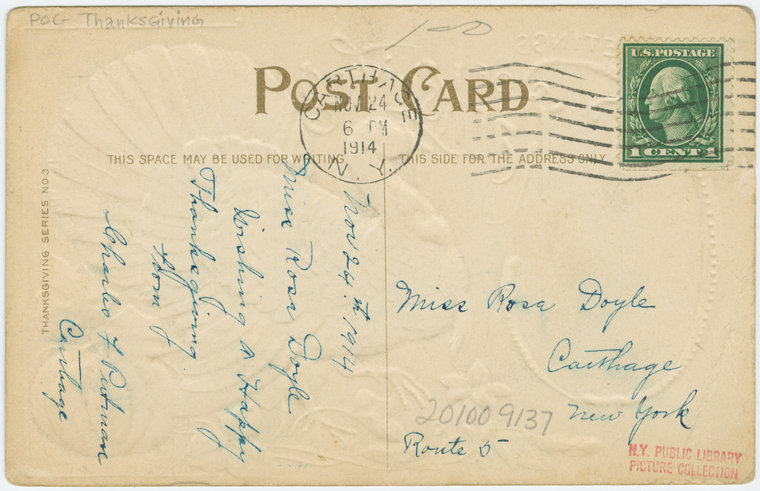 POC- Thanksgiving
100
POST CARD
CARTHAGE
NOV 24
6 PM
1914
N.Y.
U.S. POSTAGE
1 CENT 1
THIS SPACE MAY BE USED FOR WRITING
THIS SIDE FOR THE ADDRESS ONLY
THANKSGIVING SERIES NO 3
Nov 24th 1914
Miss Rosa Doyle
Wishing a Happy
Thanksgiving
from
Charles F Putman
Carthage
Miss Rosa Doyle
Carthage
New York
Route 5
201009137
N.Y. PUBLIC LIBRARY
PICTURE COLLECTION